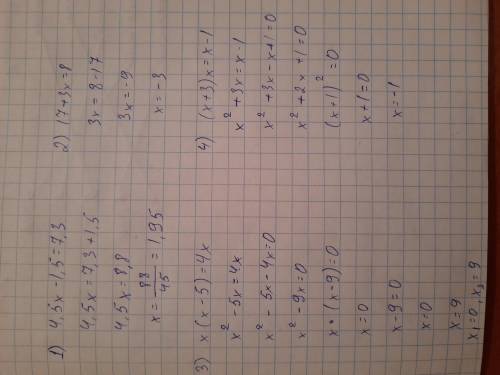 1) 4,5x - 1,5 = 7,3
4,5x = 7,3 + 1,5
4,5x = 8,8
x = 88/45 = 1,95
2) 17+3x=8
3x = 8-17
3x = -9
x = -3
3) x(x-5)=4x
x² - 5x = 4x
x² - 5x - 4x = 0
x² - 9x = 0
x • (x-9) = 0
x = 0
x-9 = 0
x = 0
x = 9
x₁ = 0, x₂ = 9
4) (x+3)x = x-1
x² + 3x = x-1
x² + 3x - x + 1 = 0
x² + 2x + 1 = 0
(x+1)² = 0
x+1 = 0
x = -1